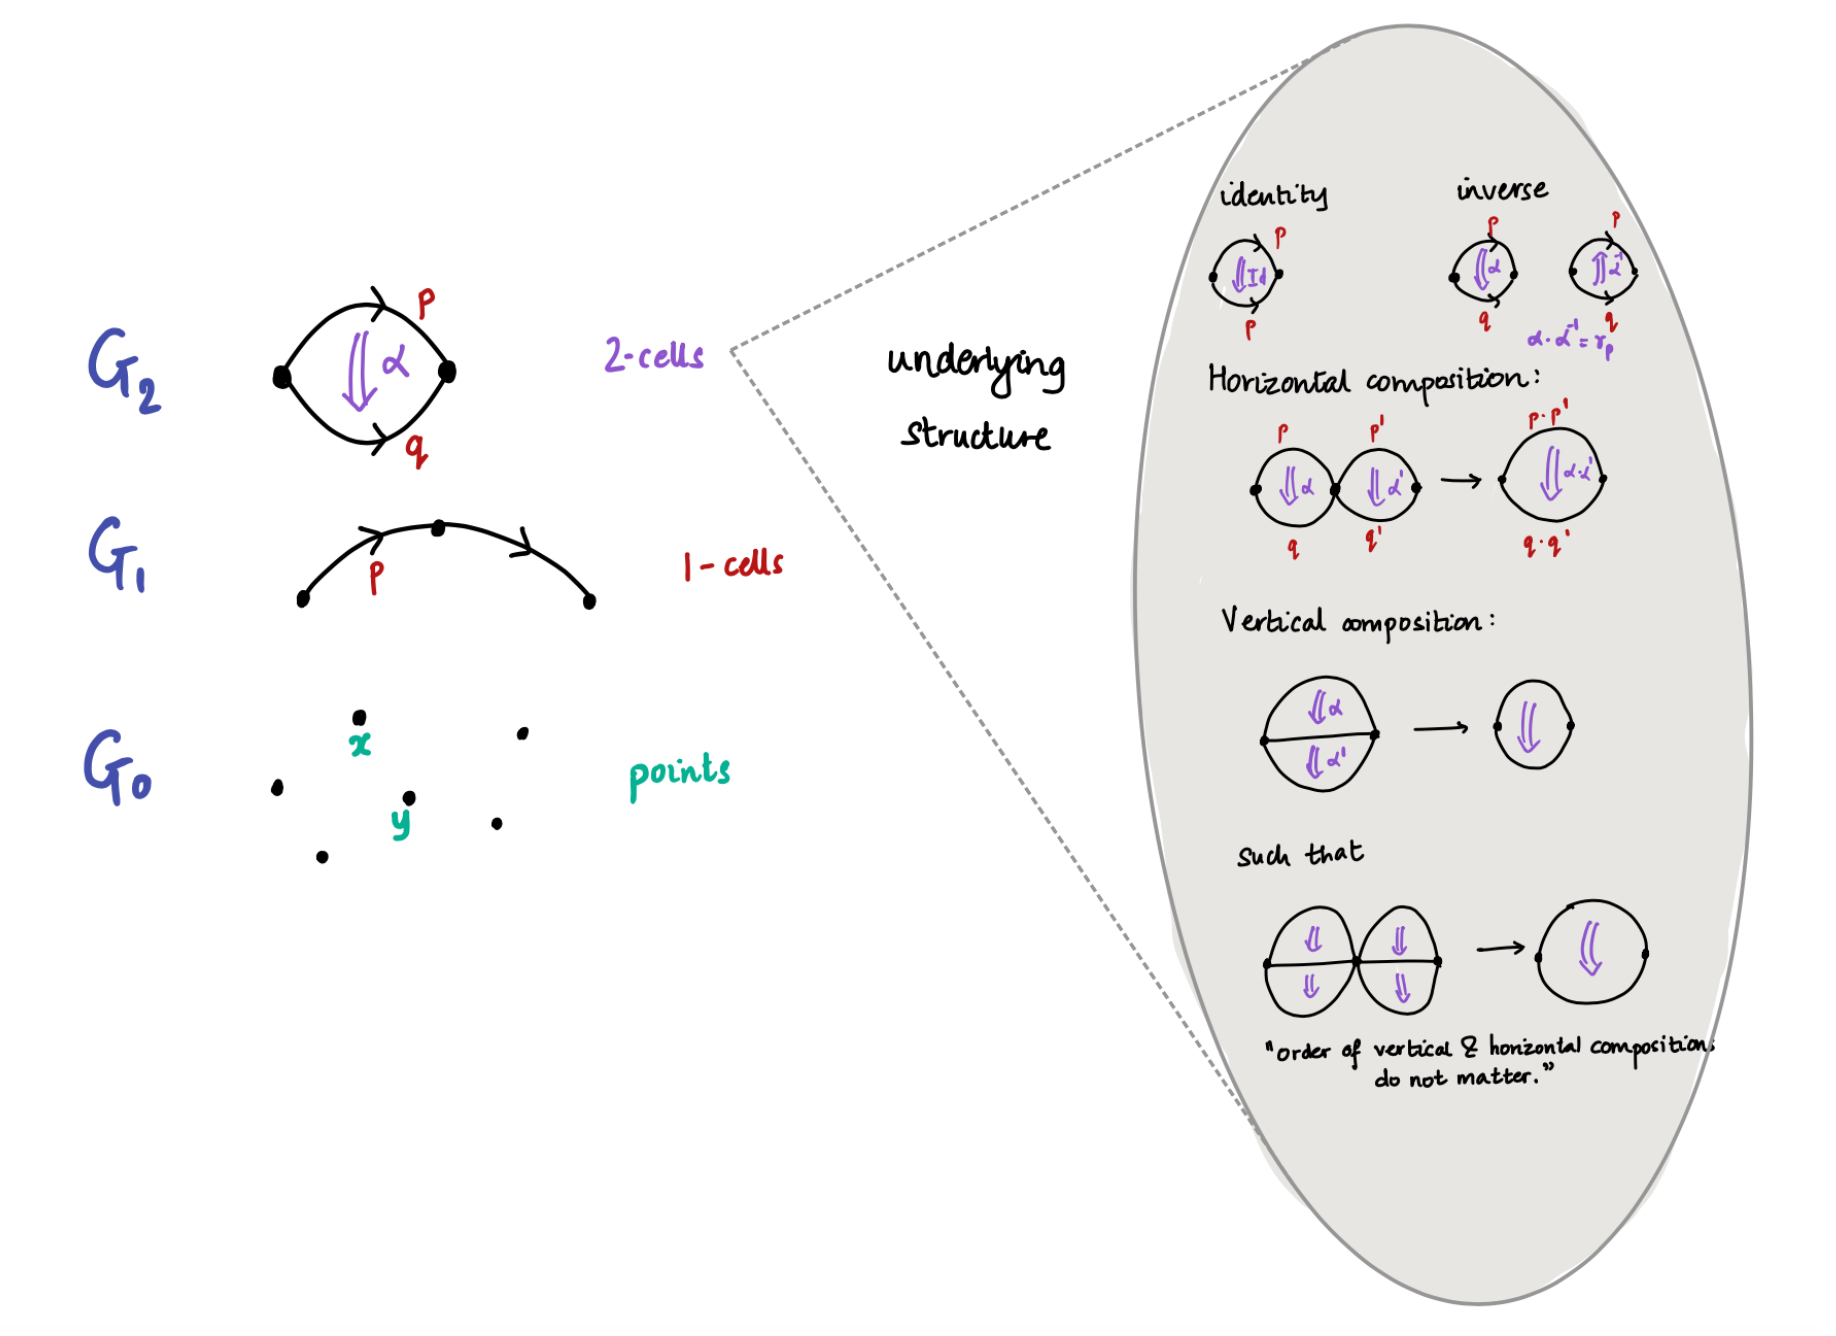 G₂
p
α
q
2-cells
G₁
p
1-cells
G₀
x
y
points
underlying
structure
identity
inverse
p
Id
p
p
α
q
p
α⁻¹
q
α·α⁻¹=r_p
Horizontal composition:
p p' p·p'
α α' α·α'
q q' q·q'
Vertical composition:
α
α'
such that
"order of vertical & horizontal compositions
do not matter."